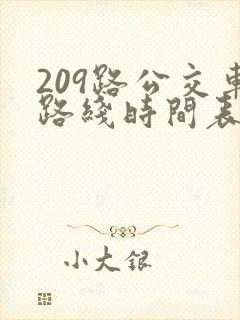 209路公交車
路綫時間表
小大銀